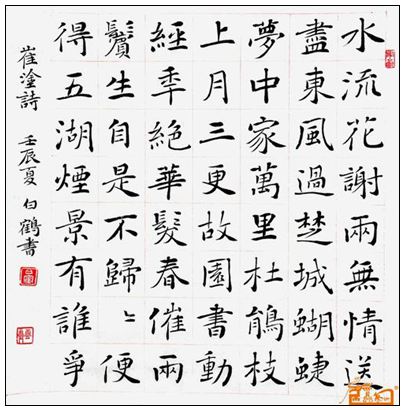 水流花謝兩無情送
盡東風過楚城蝴蜨
夢中家萬里杜鵑枝
上月三更故園書動
經秊絕華髮春催兩
鬢生自是不歸〻便
得五湖煙景有誰爭
崔塗詩 壬辰夏 白鶴書